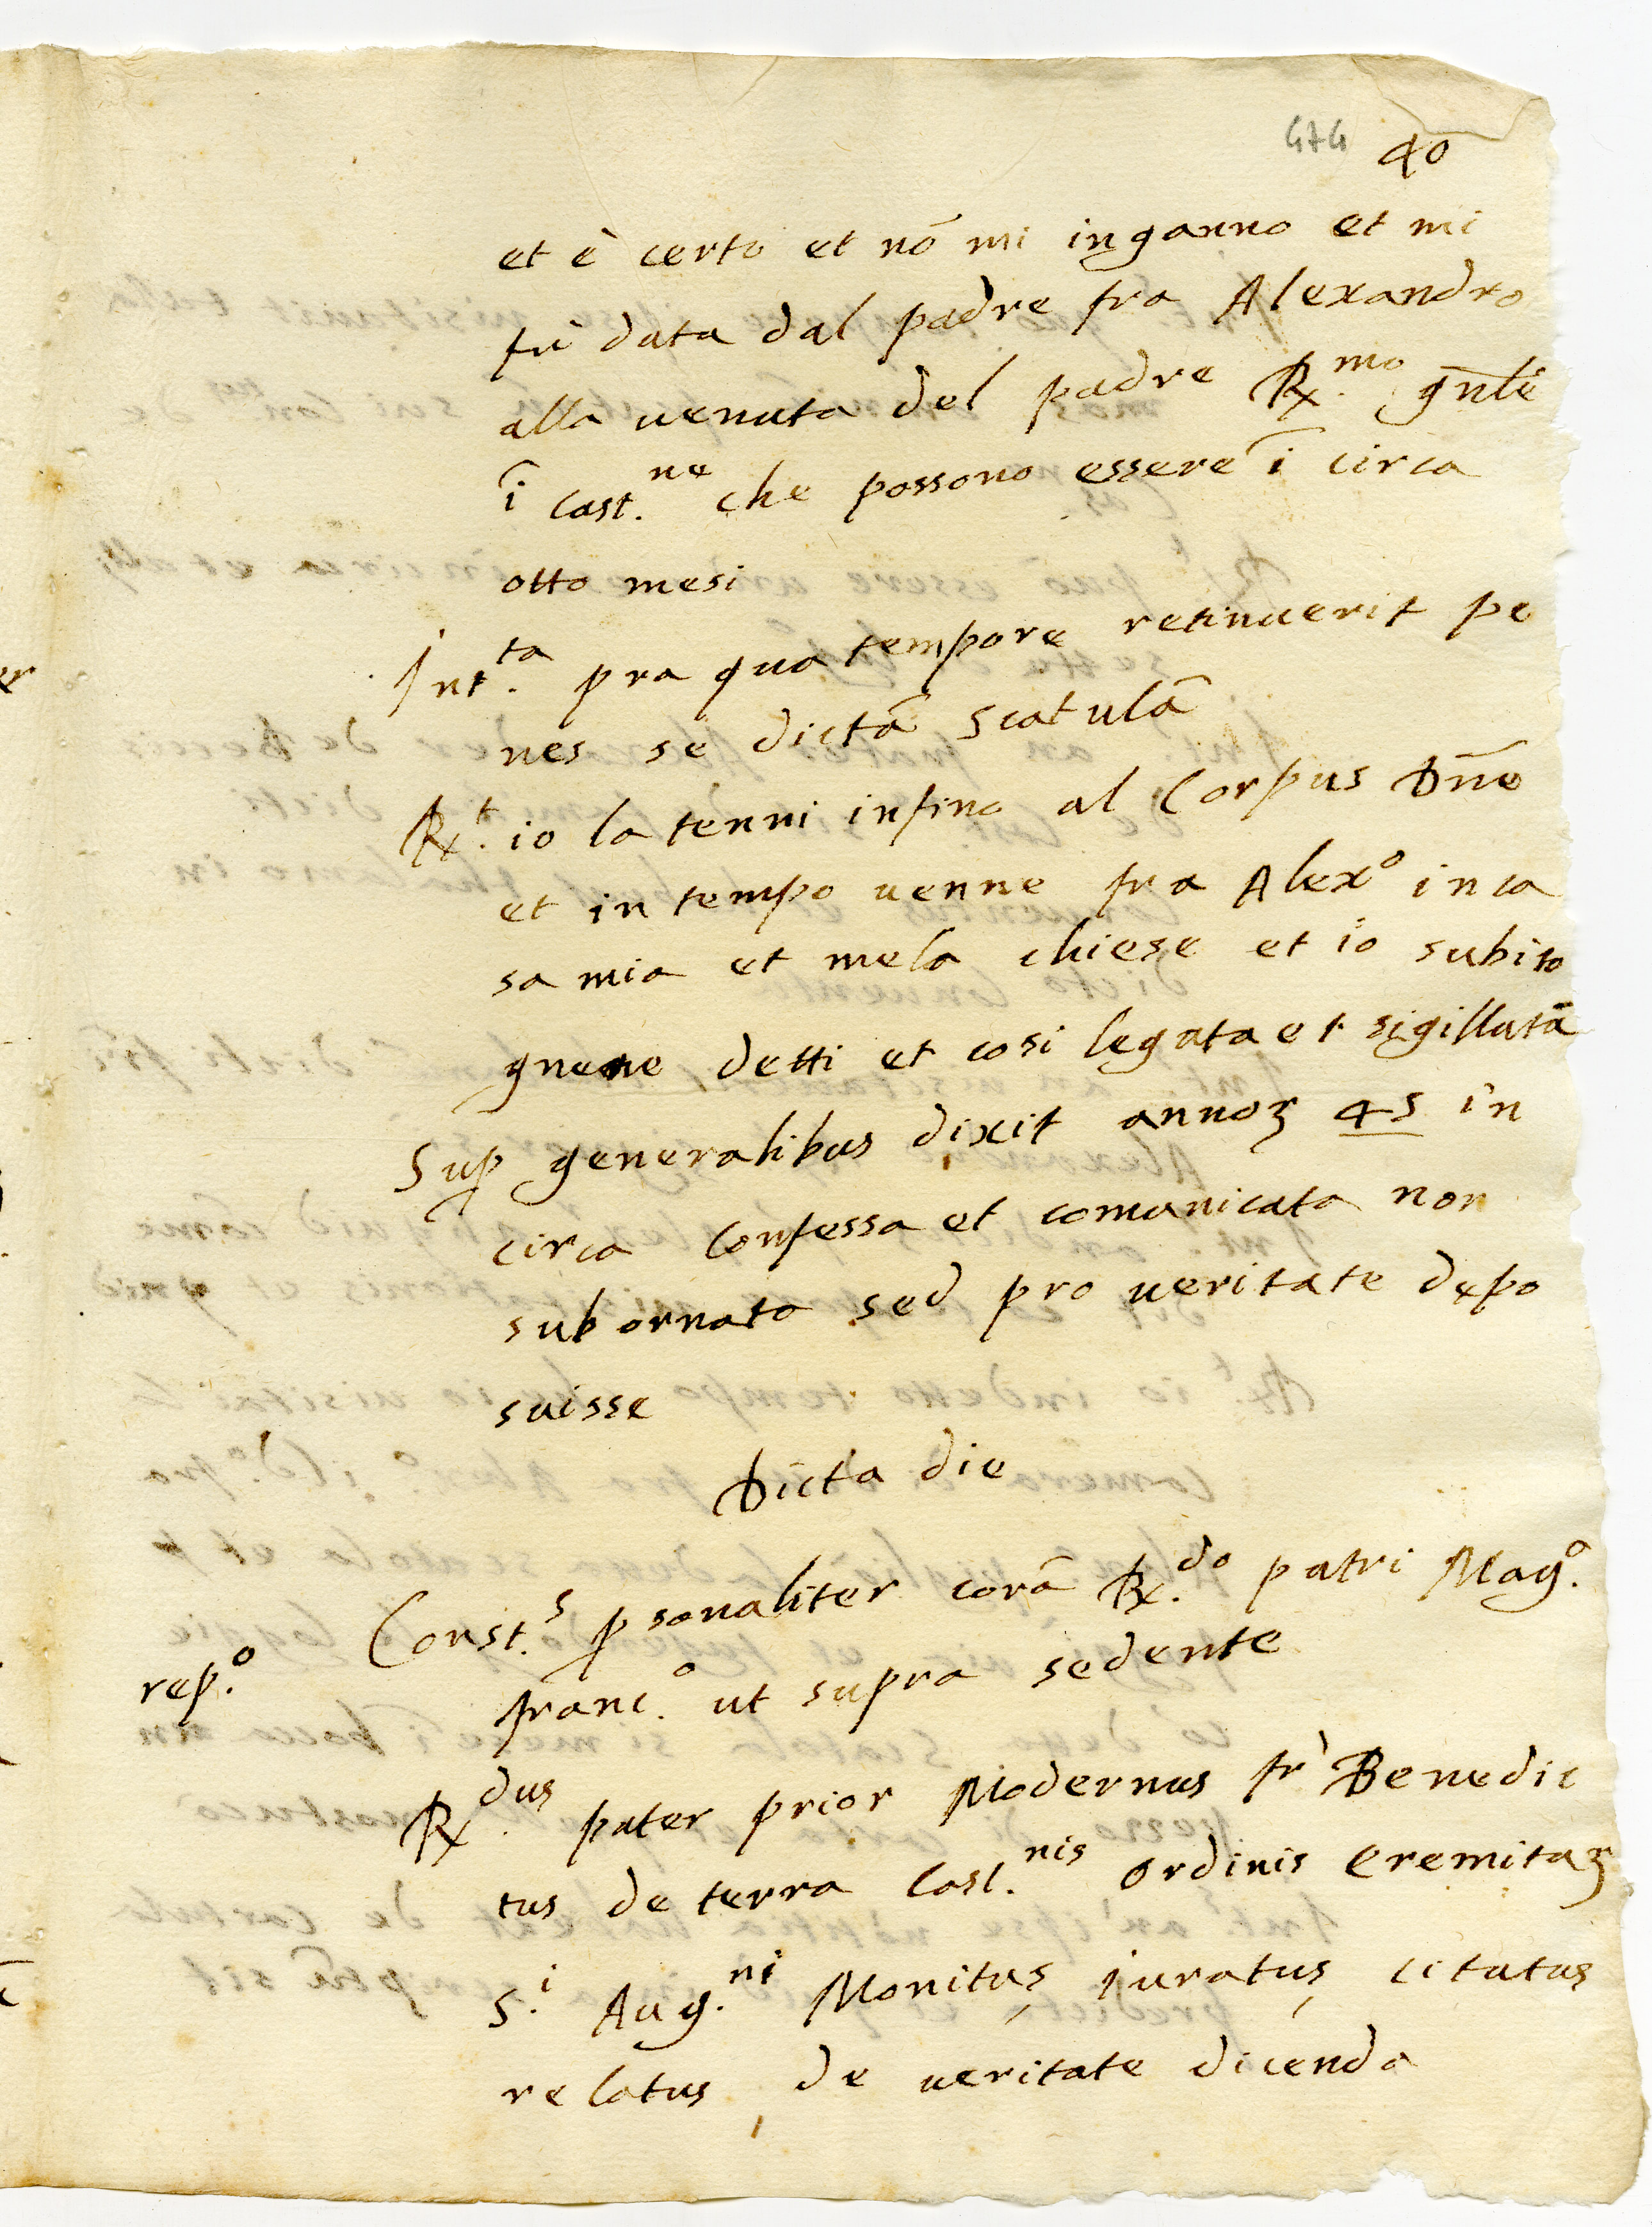 474 40
et è certo et nō mi inganno et mi
fù data dal padre fra Alexandro
alla uenuta del padre R.mo gn̄le
ī Cast.ne che possono essere ī circa
otto mesi
Int.ta pra quo tempore retinuerit pe
nes se dictā scatulā
R.t io la tenni infino al Corpus Dn̄e
et in tempo uenne fra Alex.o in ca
sa mia et mela chiese et io subito
gnene detti et cosi legata et sigillata
Sup generalibus dixit annoꝝ 45 in
circa Confessa et comunicata non
subornata sed pro ueritate depo
suisse
Dicta die
Const.s ꝑsonaliter corā R.do patri Mag.o
rep.o franc.o ut supra sedente
R.dus pater prior Modernus fr̀ Benedic
tus de terra Cast.nis ordinis Eremitaꝝ
S.i Aug.ni Monitus iuratus citatus
relatus de ueritate dicenda